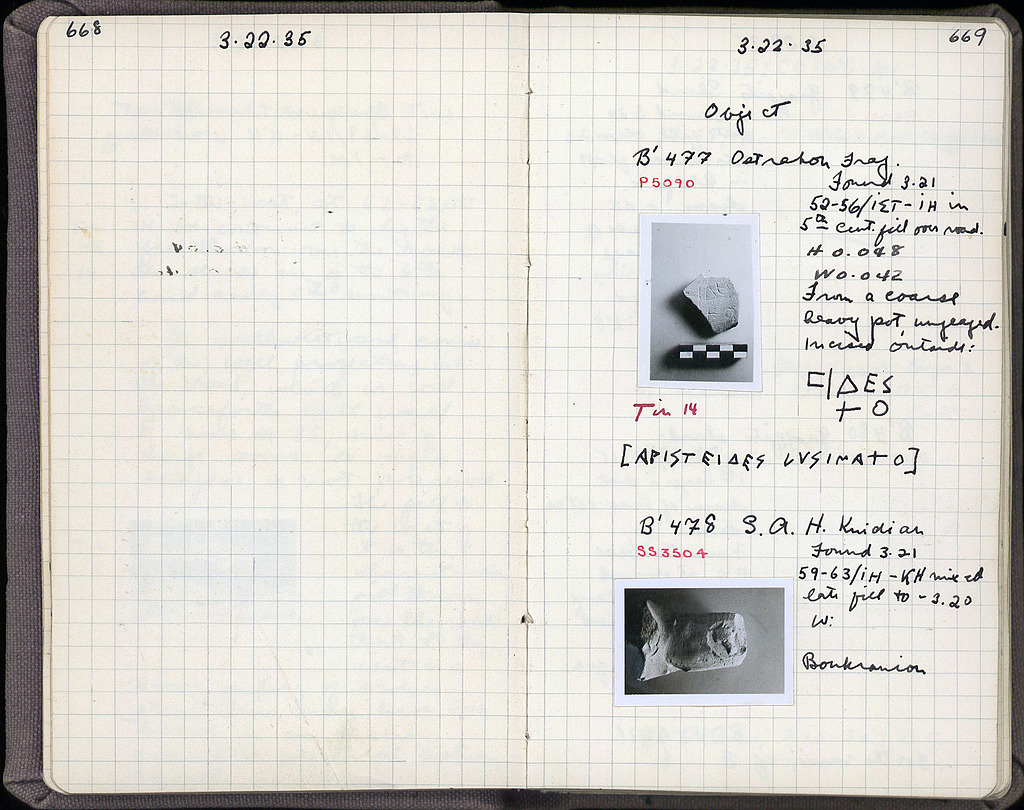 668
3·22·35
3·22·35
669
Object
B' 477 Ostrakon Frag.
P5090
Found 3.21
52-56/ΙΣΤ-ΙΗ in
5th cent. fill over road.
H 0.048
W 0.042
From a coarse
heavy pot unglazed.
Incised outside:
ΔES
+ O
Tin 14
[ARISTEIDES LVSIMA+O]
B' 478 S.A.H. Knidian
SS3504
Found 3.21
59-63/ΙΗ-ΚΗ mixed
late fill to -3.20
W:
Boukranion